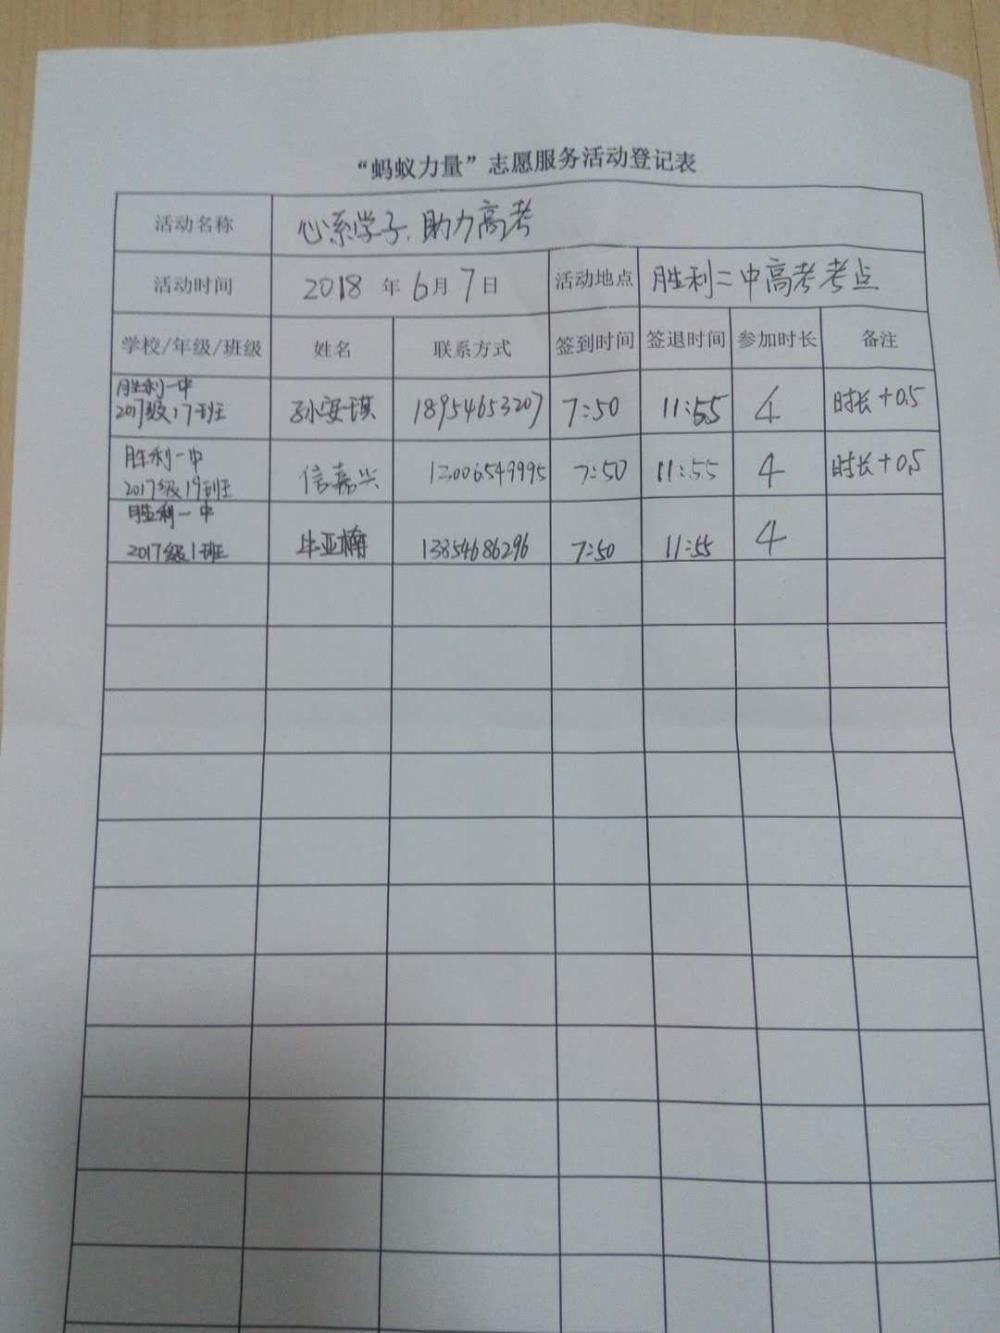 “蚂蚁力量”志愿服务活动登记表
活动名称 心系学子、助力高考
活动时间 2018 年 6月 7日 活动地点 胜利二中高考考点
学校/年级/班级 姓名 联系方式 签到时间 签退时间 参加时长 备注
胜利一中
2017级17班 孙安琪 18954653207 7:50 11:55 4 时长+0.5
胜利一中
2017级19班 信嘉兴 13006549995 7:50 11:55 4 时长+0.5
胜利一中
2017级1班 毕亚楠 13854686296 7:50 11:55 4